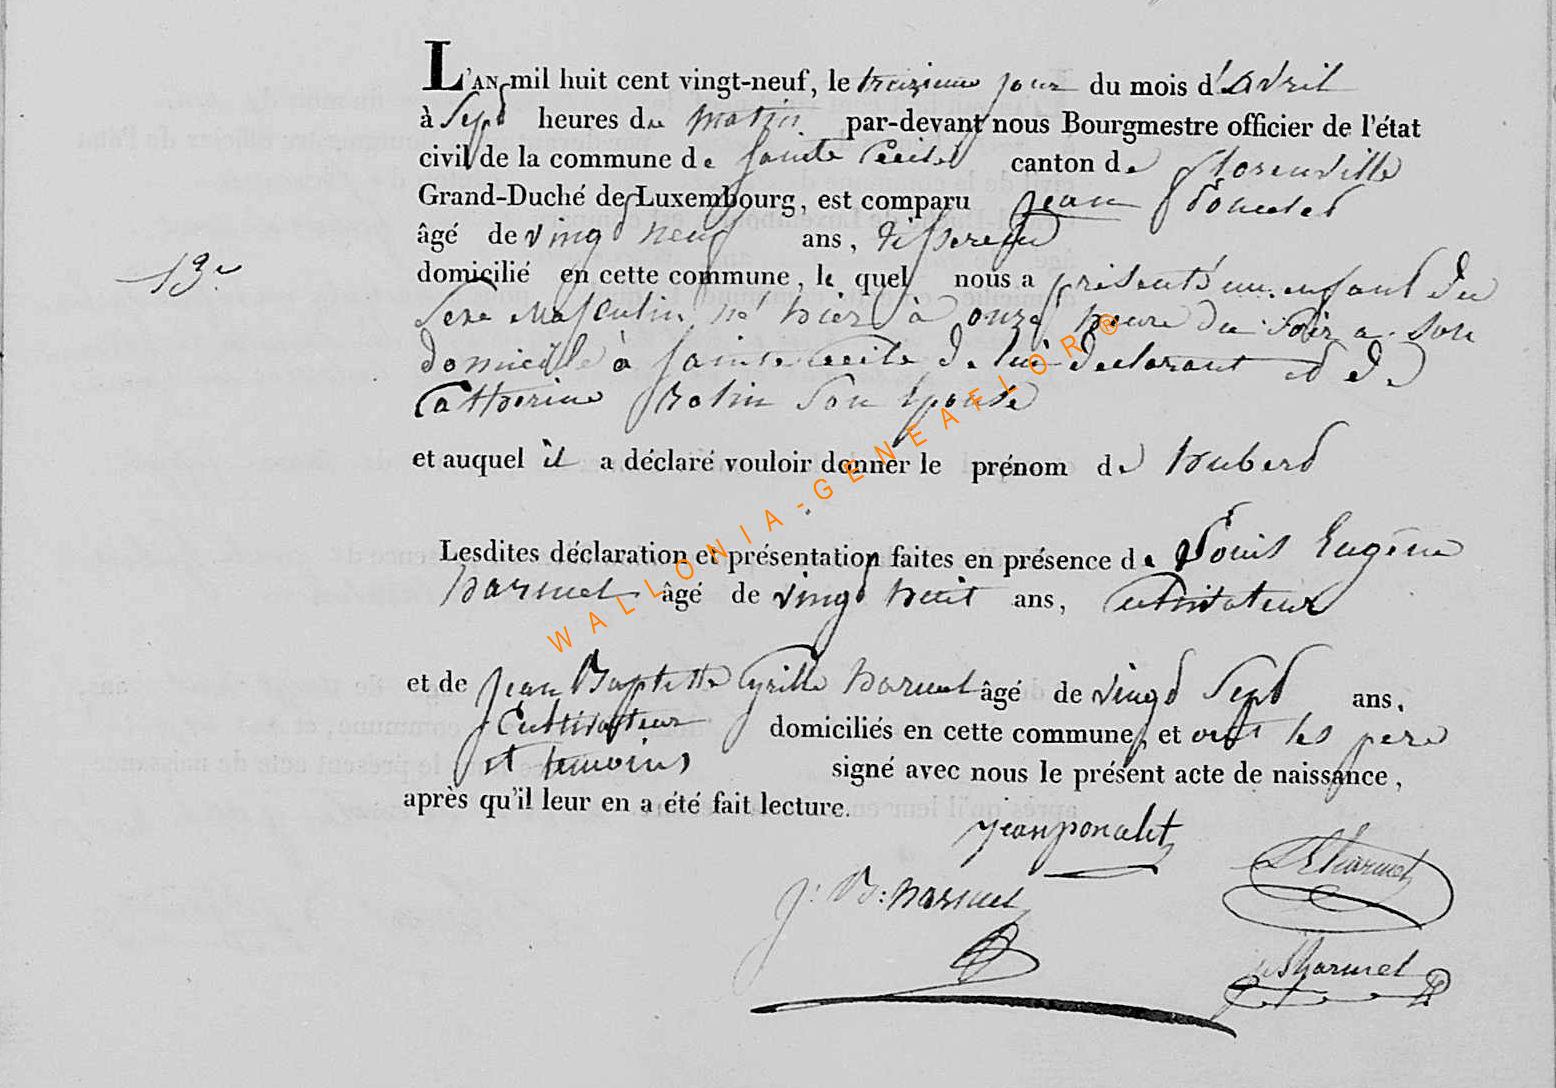 L'AN mil huit cent vingt-neuf, le treizieme jour du mois d'Avril
à Sept heures du matin par-devant nous Bourgmestre officier de l'état
civil de la commune de Sainte Cecile canton de florenville
Grand-Duché de Luxembourg, est comparu jean
âgé de vingt neuf ans, tisserend
13e
domicilié en cette commune, le quel nous a présenté un enfant du
Sexe Masculin né hier à onze heure du Soir a Son
domicille à Sainte Cecile de lui déclarant et de
Catherine Robin Son Epouse
et auquel il a déclaré vouloir donner le prénom de hubert
Lesdites déclaration et présentation faites en présence de Louis Eugène
harmel âgé de vingt huit ans, Cultivateur
et de jean Baptiste Cyrille harmel âgé de vingt Sept ans,
Cultivateur domiciliés en cette commune, et ont les pere
et temoins signé avec nous le présent acte de naissance,
après qu'il leur en a été fait lecture.
jean poncelet
J: B: harmel
LEharmel
harmel
WALLONIA-GENEAFLOR®